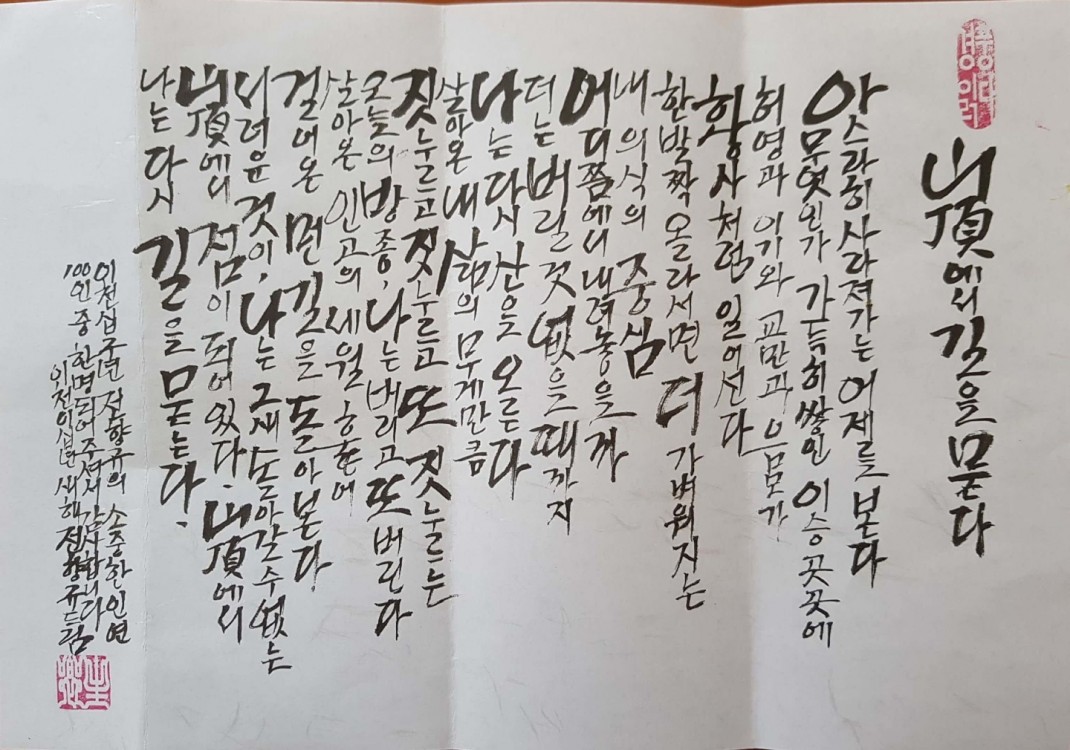 山頂에서 길을 묻다
아스라히 사라져가는 어제를 본다
무엇인가 가득히 쌓인 이승 곳곳에
허영과 이기와 교만과 음모가
황사처럼 일어선다
한발짝 올라서면 더 가벼워지는
내 의식의 중심
어디쯤에서 내려놓을까
더는 버릴것 없을때까지
나는 다시 산을 오른다
살아온 내 삶의 무게만큼
짓누르고 짓누르고 또 짓누르는
오늘의 방종, 나는 버리고 또 버린다
살아온 인고의 세월 속에
걸어온 먼 길을 돌아본다
너려운 것이, 나는 그새 돌아갈수 없는
山頂에서 점이 되어 있다. 山頂에서
나는 다시 길을 묻는다.
이천십구년 전향규의 소중한 인연
100인 중 한명 되어주셔서 감사합니다
이천이십년 새해 전향규 드림